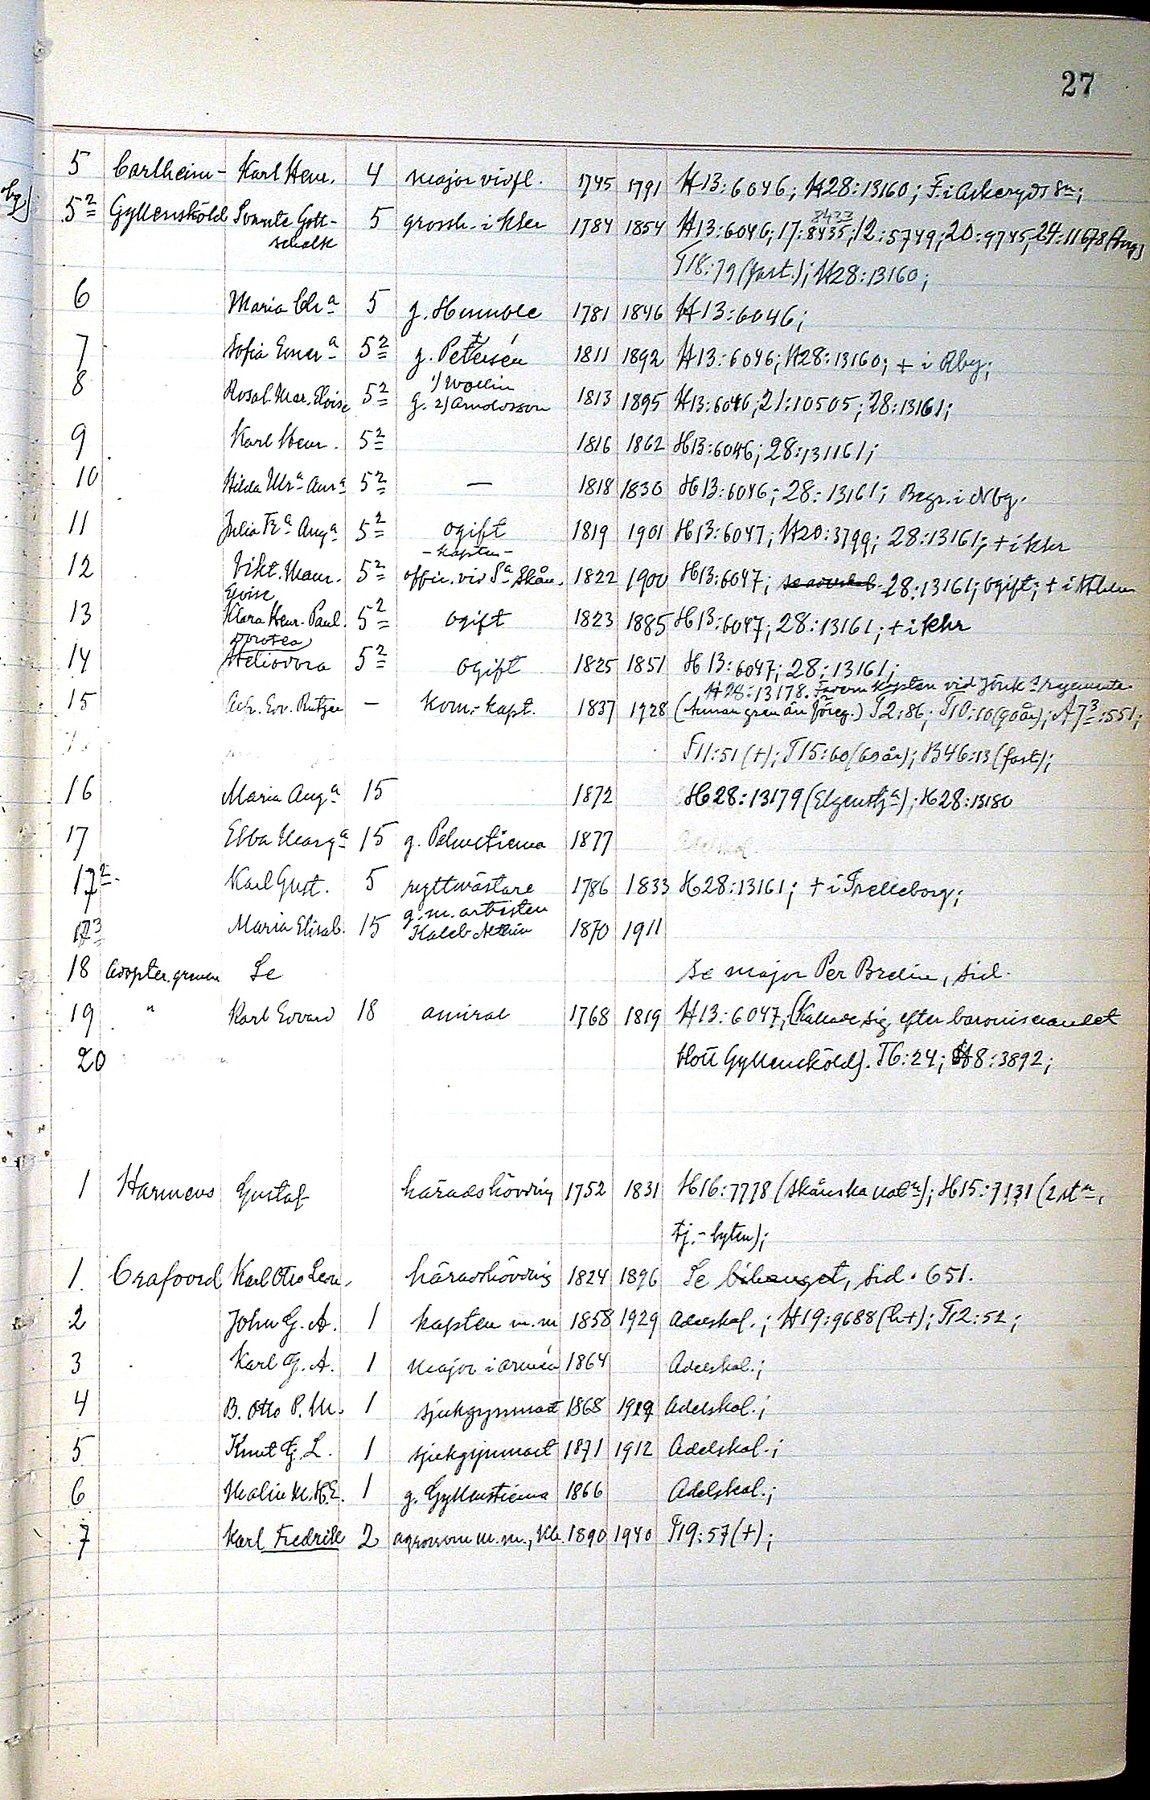 27
5 Carlheim- Karl Henr. 4 major vid fl. 1745 1791 H13:6046; H28:13160; F. i Askeryds sn;
5² Gyllensköld Svante Gott- 5 grossh. i Khr 1784 1854 H13:6046; 17:8435; 12:5749; 20:9745; 24:11678
8433
schalk T18:79 (fast.); H28:13160;
6 Maria Chra 5 g. Humble 1781 1846 H13:6046;
7 Sofia Emera 5² g. Petersén 1811 1892 H13:6046; H28:13160; + i Rby;
8 Rosal. Mar. Eloise 5² g. 1) Wollin 2) Arnoldsson 1813 1895 H13:6046; 21:10505; 28:13161;
9 Karl Henr. 5² 1816 1862 H13:6046; 28:13161;
10 Hilda Ulra Aura 5² — 1818 1830 H13:6046; 28:13161; Begr. i Nby.
11 Julia Fra Auga 5² ogift 1819 1901 H13:6047; H20:3799; 28:13161; + i khr
- kapten -
12 Vikt. Maur. 5² offic. vid Sa Skån. 1822 1900 H13:6047; 28:13161; ogift; + i
Eloise
13 Klara Henr. Paul. 5² ogift 1823 1885 H13:6047; 28:13161; + i khr
Dorotea
14 Heliodora 5² ogift 1825 1851 H13:6047; 28:13161;
H28:13178. Fadern kapten vid Jönk. regemente
15 Ach. Edv. Rutger — kom.-kapt. 1837 1928 (Annan gren än föreg.) T2:86; T10:10 (90 år); A7³:551;
F11:51 (+); T15:60 (69 år); B46:13 (fast);
16 Maria Auga 15 1872 H28:13179 (); H28:13180
17 Ebba Marga 15 g. Palmstierna 1877
17² Karl Gust. 5 ryttmästare 1786 1833 H28:13161; + i Trelleborg;
g. m. artisten
17³ Maria Elisab. 15 Kaleb Althin 1870 1911
18 Adopter. grenen Se Se major Per Bredin, sid.
19 " Karl Edvard 18 amiral 1768 1819 H13:6047; (Kallade sig efter baroniserandet
20 blott Gyllensköld). T6:24; H8:3892;
1 Harmens Gustaf häradshövding 1752 1831 H16:7778 (Skånska natn); H15:7131 (2 st n,
tj.-byten);
1 Crafoord Karl Otto Leon. häradshövding 1824 1896 Se bihanget, sid. 651.
2 John G. A. 1 kapten m.m 1858 1929 Adelskal.; H19:9688 (h+); T12:52;
3 Karl G. A. 1 major i armén 1864 Adelskal.;
4 B. Otto P. M. 1 sjukgymnast 1868 1929 Adelskal.;
5 Knut G. L. 1 sjukgymnast 1871 1912 Adelskal.;
6 Malin M. K. E. 1 g. Gyllenstierna 1866 Adelskal.;
7 Karl Fredrik 2 agronom m.m., Kh. 1890 1940 T19:57 (+);